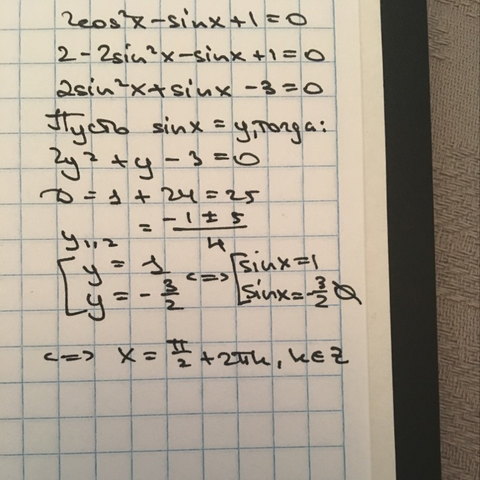 2cos²x - sinx + 1 = 0
2 - 2sin²x - sinx + 1 = 0
2sin²x + sinx - 3 = 0
Пусть sinx = y, тогда:
2y² + y - 3 = 0
D = 1 + 24 = 25
y₁,₂ = (-1 ± 5)/4
[y = 1 <=> [sinx = 1
[y = -3/2 [sinx = -3/2 ∅
<=> x = π/2 + 2πk, k∈Z